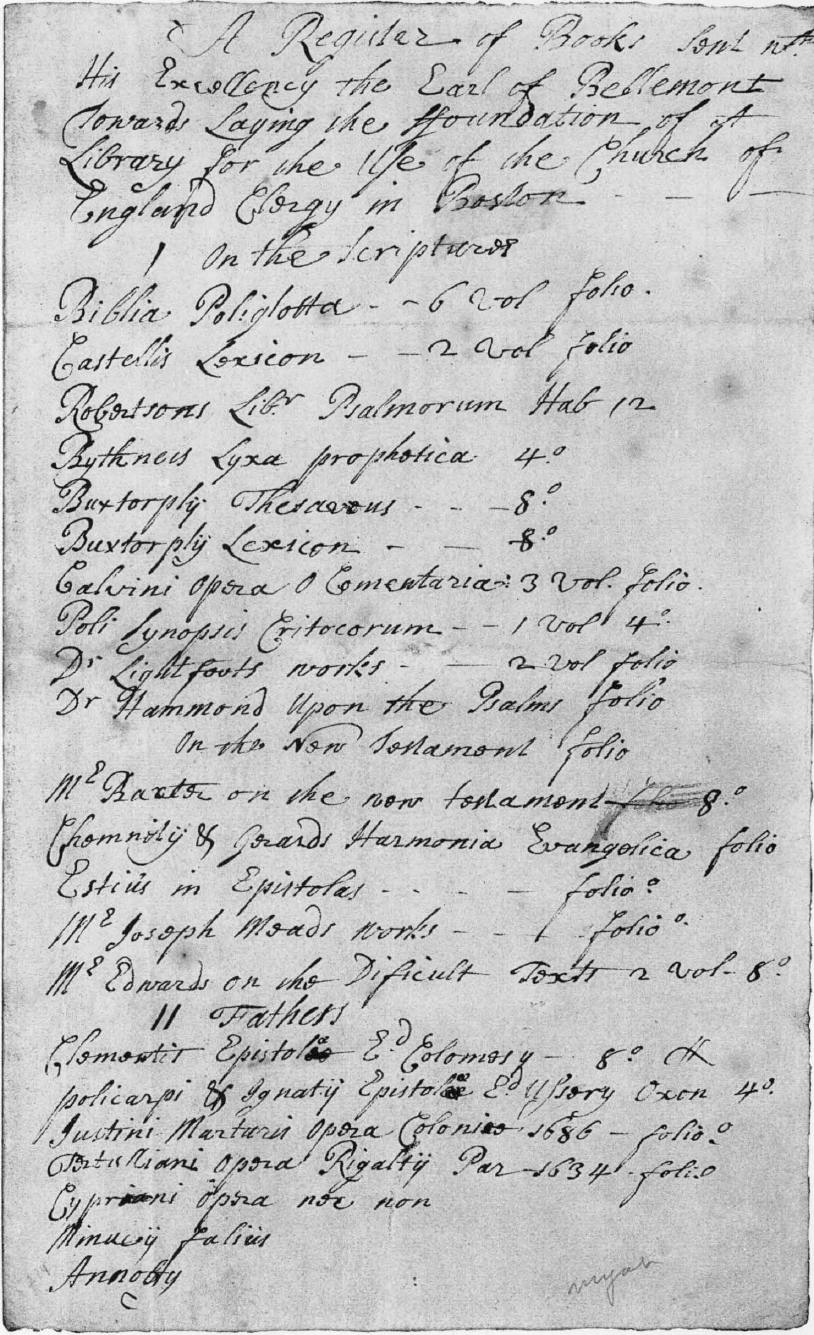 A Register of Books Sent wth
His Excellency the Earl of Bellemont
Towards Laying the ffoundation of A
Library for the Use of the Church of
England Clergy in Boston - -
1 On the Scriptures
Biblia Poliglotta - - 6 vol folio.
Castellis Lexicon - - 2 vol folio
Robertsons Libr Psalmorum Hab 12
Bythneis Lyra prophetica 4.o
Buxtorphy Thesaurus - - - 8.o
Buxtorphij Lexicon - - 8.o
Calvini opera O Comentaria: 3 Vol. folio.
Poli Synopsis Critocorum - - 1 Vol 4o.
Dr Lightfoots works - - 2 vol folio
Dr Hammond Upon the Psalms folio
On the New Testament folio
Mr Baxter on the new testament 8.o
Chemnitij & Gerards Harmonia Evangelica folio
Estius in Epistolas - - - - folio o
Mr Joseph Meads works - - folio o.
Mr Edwards on the Dificult Texts 2 vol - 8o
11 Fathers
Clementis Epistolæ Ed Colomesy - 8o
policarpi & Ignatij Epistolæ Ed Ussery Oxon 4o.
Justini Martaris Opera Coloniæ 1686 - folio.o
Tertulliani Opera Rigaltij Par 1634 folio
Cypriani opera nec non
Minucij falius